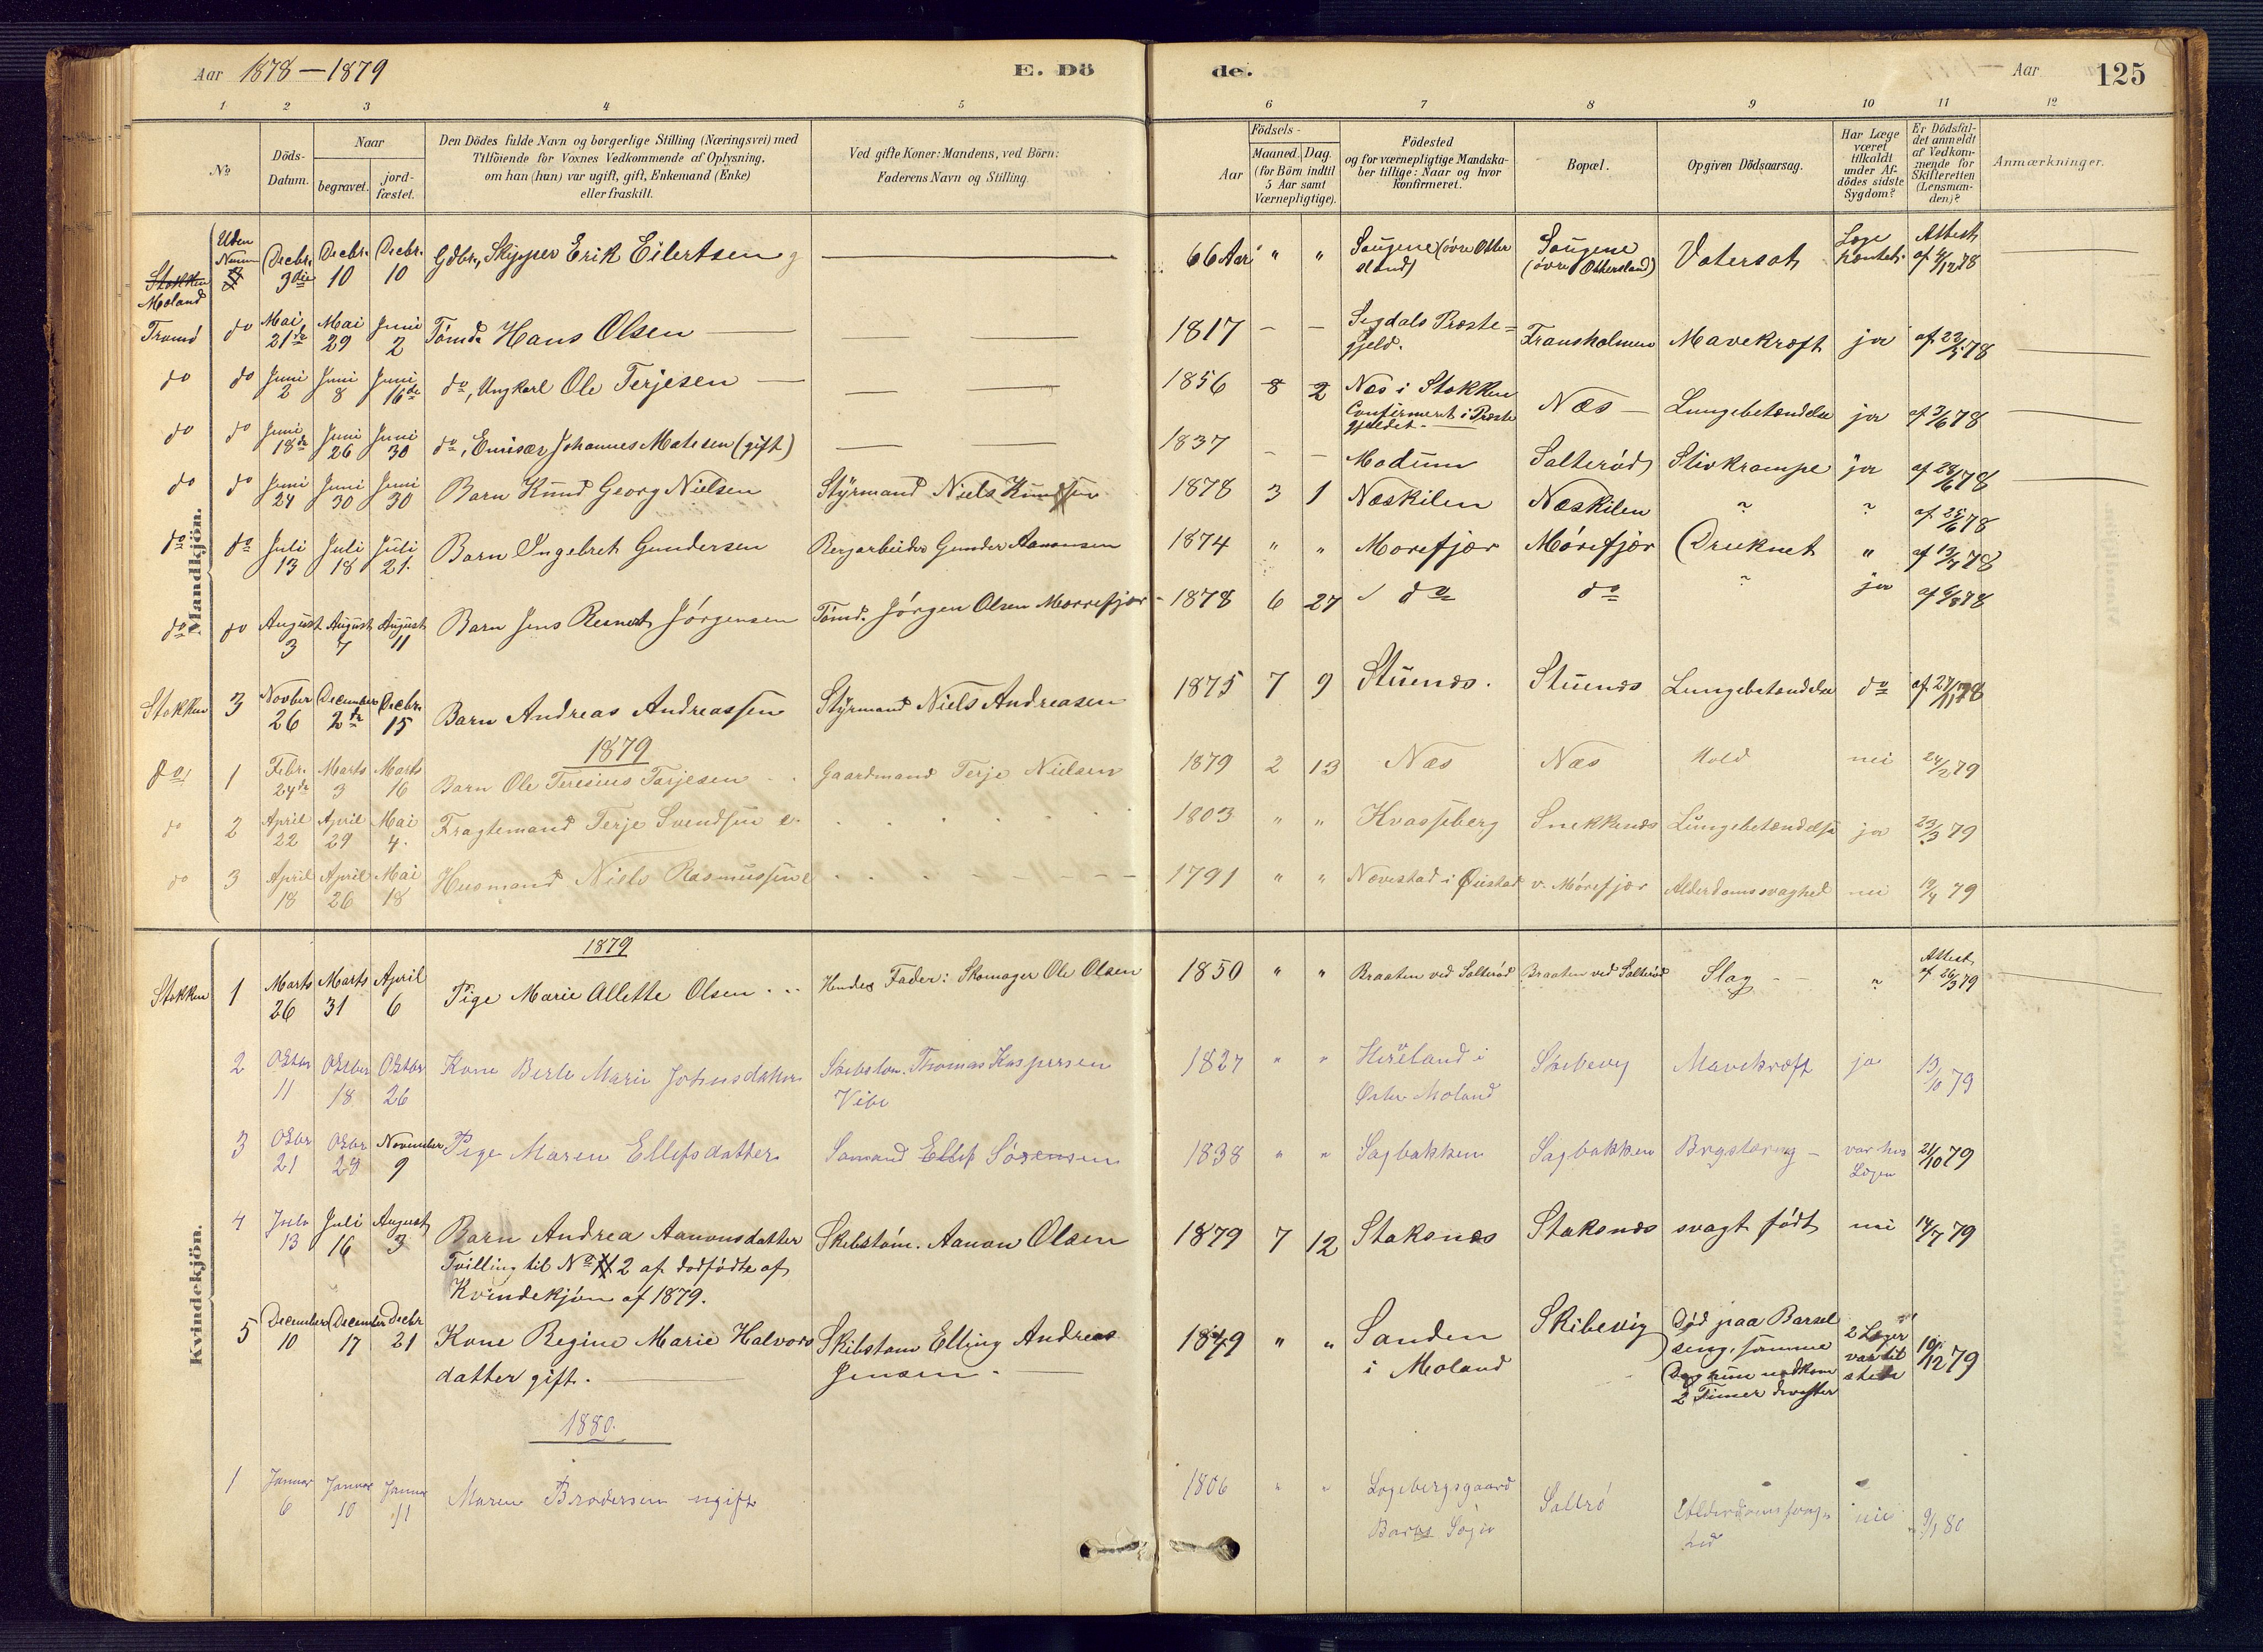 Aar 1878—1879
E. Dö
de.
Aar
125
1 2 3 4 5 6 7 8 9 10 11 12
No
Döds-
Datum.
Naar
begravet.
jord-
fæstet.
Den Dödes fulde Navn og borgerlige Stilling (Næringsvei) med
Tilföiende for Voxnes Vedkommende af Oplysning,
om han (hun) var ugift, gift, Enkemand (Enke)
eller fraskilt.
Ved gifte Koner: Mandens, ved Börn:
Faderens Navn og Stilling.
Födsels-
Aar
Maaned.
Dag.
(for Börn indtil
5 Aar samt
Værnepligtige).
Födested
og for værnepligtige Mandska-
ber tillige: Naar og hvor
konfirmeret.
Bopæl.
Opgiven Dödsaarsag.
Har Læge
været
tilkaldt
under Af-
dödes sidste
Sygdom?
Er Dödsfal-
det anmeldt
af Vedkom-
mende for
Skifteretten
(Lensman-
den)?
Anmærkninger.
Mandkjön.
Stokken
Moland
Uden
Num
Decbr. 3die
Decbr. 10
Decbr. 10
Gdbr., Skipper Erik Eilertsen g
66 Aar " "
Saugene (övre Otter
sland)
Saugene
(övre Ottersland)
Vatersot
Læge
hentet
Attest
af 4/12 78
Tromö do Mai 21de Mai 29 Juni 2 Tömd. Hans Olsen
1817 – – Sigdals Præste=
gjeld.
Fransholmen Mavekræft ja af 22/5 78
do do Juni 2 Juni 8 Juni 16de do, Ungkarl Ole Terjesen
1856 8 2 Næs i Stokken
Confirmeret i Præste
gjeldet.
Næs Lungebetændelse ja af 3/6 78
do do Juni 18de Juni 26 Juni 30 do, Emisær Johannes Mathisen (gift)
1837 – – Modum Salteröd Stivkrampe ja af 28/6 78
do do Juni 24 Juni 30 Juni 30 Barn Knud Georg Nielsen Styrmand Niels Knudsen
1878 3 1 Næskilen Næskilen " " af 25/6 78
do do Juli 13 Juli 18 Juli 21. Barn Ingebret Gundersen Bergarbeider Gunder Aanonsen
1874 " " Morefjær Mörefjær Druknet " af 13/7 78
do do August 3 August 7 August 11 Barn Jens Reinert Jörgensen Tömd. Jörgen Olsen Morrefjær
1878 6 27 do do " ja af 6/8 78
Stokken 3 Novber 26 December 2de Decbr. 15 Barn Andreas Andreassen Styrmand Niels Andreasen
1875 7 9 Stuenæs. Stuenæs Lungebetændelse do af 27/11 78
1879
do 1 Febr. 24de Marts 3 Marts 16 Barn Ole Teresius Tarjesen Gaardmand Terje Nielsen
1879 2 13 Næs Næs Hold nei 24/2 79
do 2 April 22 April 29 Mai 4. Fragtemand Terje Svendsen e.
1803 " " Kvasseberg Snekkenæs Lungebetændelse ja 23/3 79
do 3 April 18 April 26 Mai 18 Husmand Niels Rasmussen e
1791 " " Nævestad i Öiestad v. Mörefjær Alderdomssvaghed nei 19/4 79
Kvindekjön.
1879
Stokken 1 Marts 26 Marts 31 April 6 Pige Marie Allette Olsen Hendes Fader: Skomager Ole Olsen
1850 " " Braaten ved Salteröd Braaten ved Salteröd Slag " Attest
af 26/3 79
2 Oktbr 11 Oktber 18 Oktbr 26 Kone Berte Marie Johnsdatter Skibstøm. Thomas Kaspersen
Vibe
1827 " " i
Øster Moland
Skibevig Mavekræft ja 13/10 79
3 Oktbr 21 Oktbr 29 November 9 Pige Maren Ellefsdatter Sømand Ellef Sörensen
1838 " " Sagbakken Sagbakken Brystæring var hos
Lægen
21/10 79
4 Juli 13 Juli 16 August 3 Barn Andrea Aanonsdatter Skibstöm. Aanon Olsen
Tvilling til No 2 af dødfödte af
Kvindekjön af 1879.
1879 7 12 Staksnæs Staksnæs svagt födt nei 14/7 79
5 December 10 December 17 Decbr 21 Kone Regine Marie Halvors
datter gift.
Skibstøm Elling Andreas
Jensen.
1849 " " Sanden
i Moland
Skibevig
Död paa Barsel
seng, samme
Dag hun nedkom
2 Timer derefter
2 Læger
var til
stede
10/12 79
1880.
1 Januar 6 Januar 10 Januar 11 Maren Brodersen ugift
1806 " " Longebergsgaard
Barbo Sogn
Saltrö
Alderdomssvag-
hed
nei 9/1 80